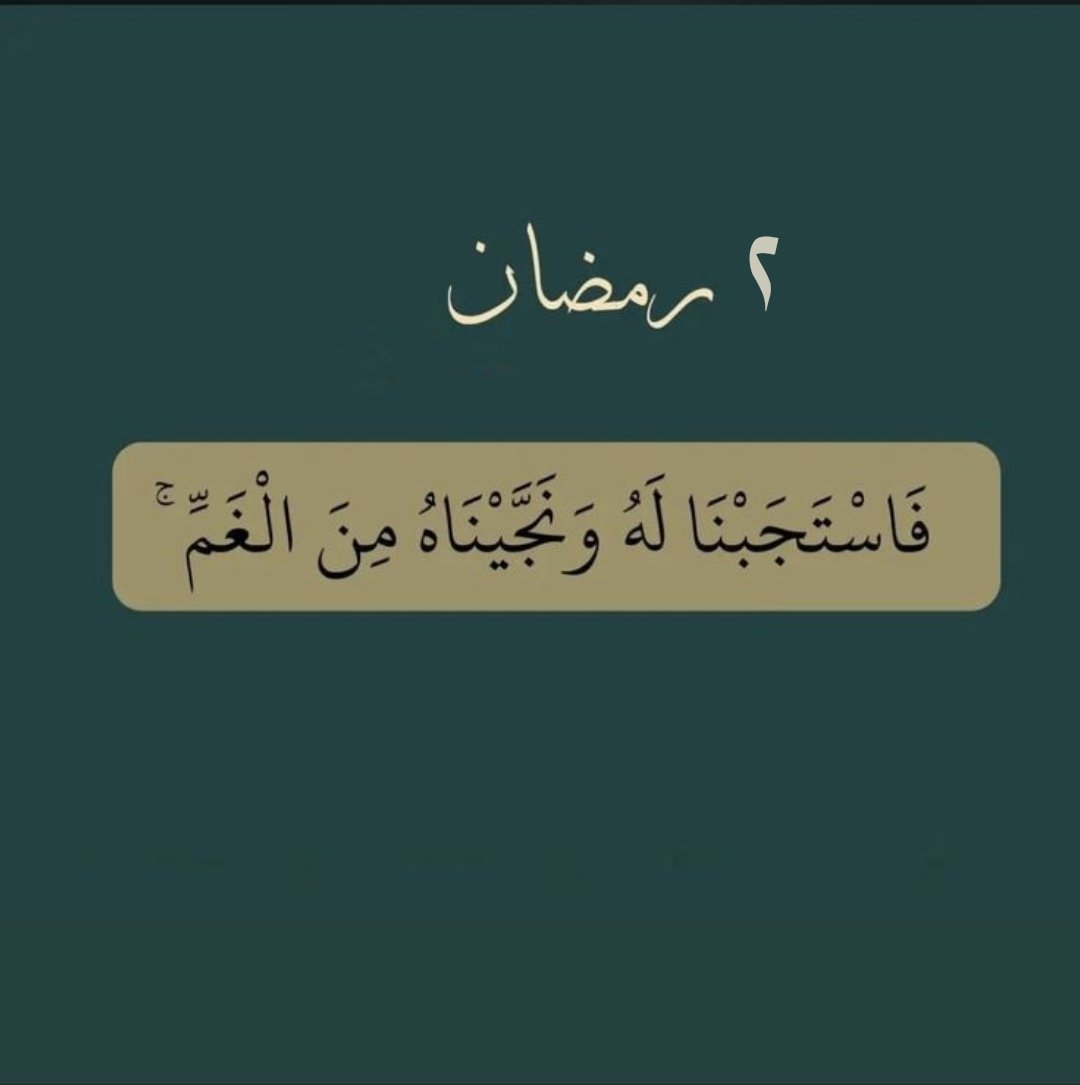 ٢ رمضان
فَاسْتَجَبْنَا لَهُ وَنَجَّيْنَاهُ مِنَ الْغَمِّ ۚ